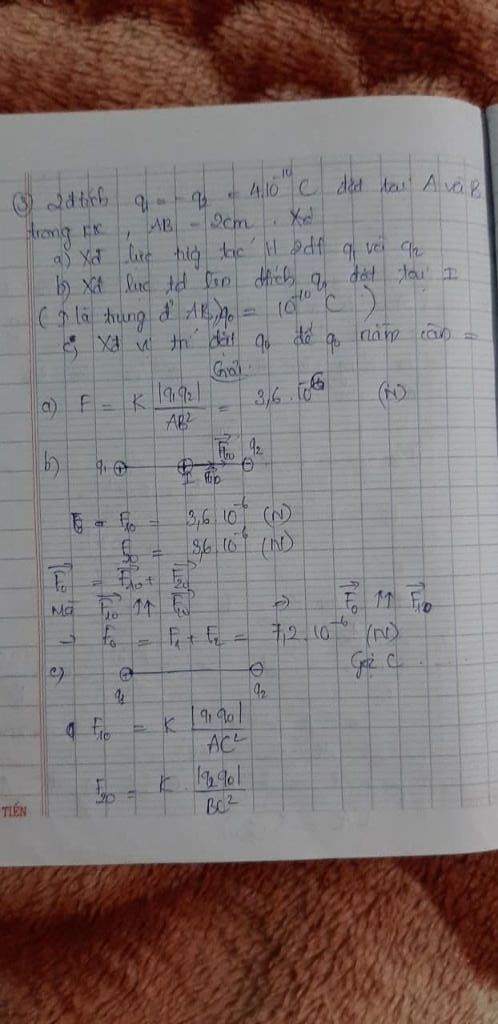 ③ 2 đtích q₁ = - q₂ = 4.10⁻¹⁰ C đặt tại A và B
trong , AB = 2cm. Xđ
a) Xđ lực tác 2đt q₁ và q₂
b) Xđ lực td lên đtích q₀ đặt tại I
(I là trung đ' AB, q₀ = 10⁻¹⁰ C)
c) Xđ vị trí đặt q₀ để q₀ nằm cân =
Giải
a) F = K |q₁q₂| / AB² = 3,6 . 10⁻⁶ (N)
b) q₁ ⊕ ⊕ I F₂₀ F₁₀ ⊖ q₂
F₁₀ = 3,6.10⁻⁶ (N)
F₂₀ = 3,6.10⁻⁶ (N)
F₀ = F₁₀ + F₂₀
Mà F₁₀ ↑↑ F₂₀ => F₀ ↑↑ F₁₀
→ F₀ = F₁ + F₂ = 7,2.10⁻⁶ (N)
Gọi C . .
c) q₁ q₂
F₁₀ = K |q₁q₀| / AC²
F₂₀ = K . |q₂q₀| / BC²
TIẾN